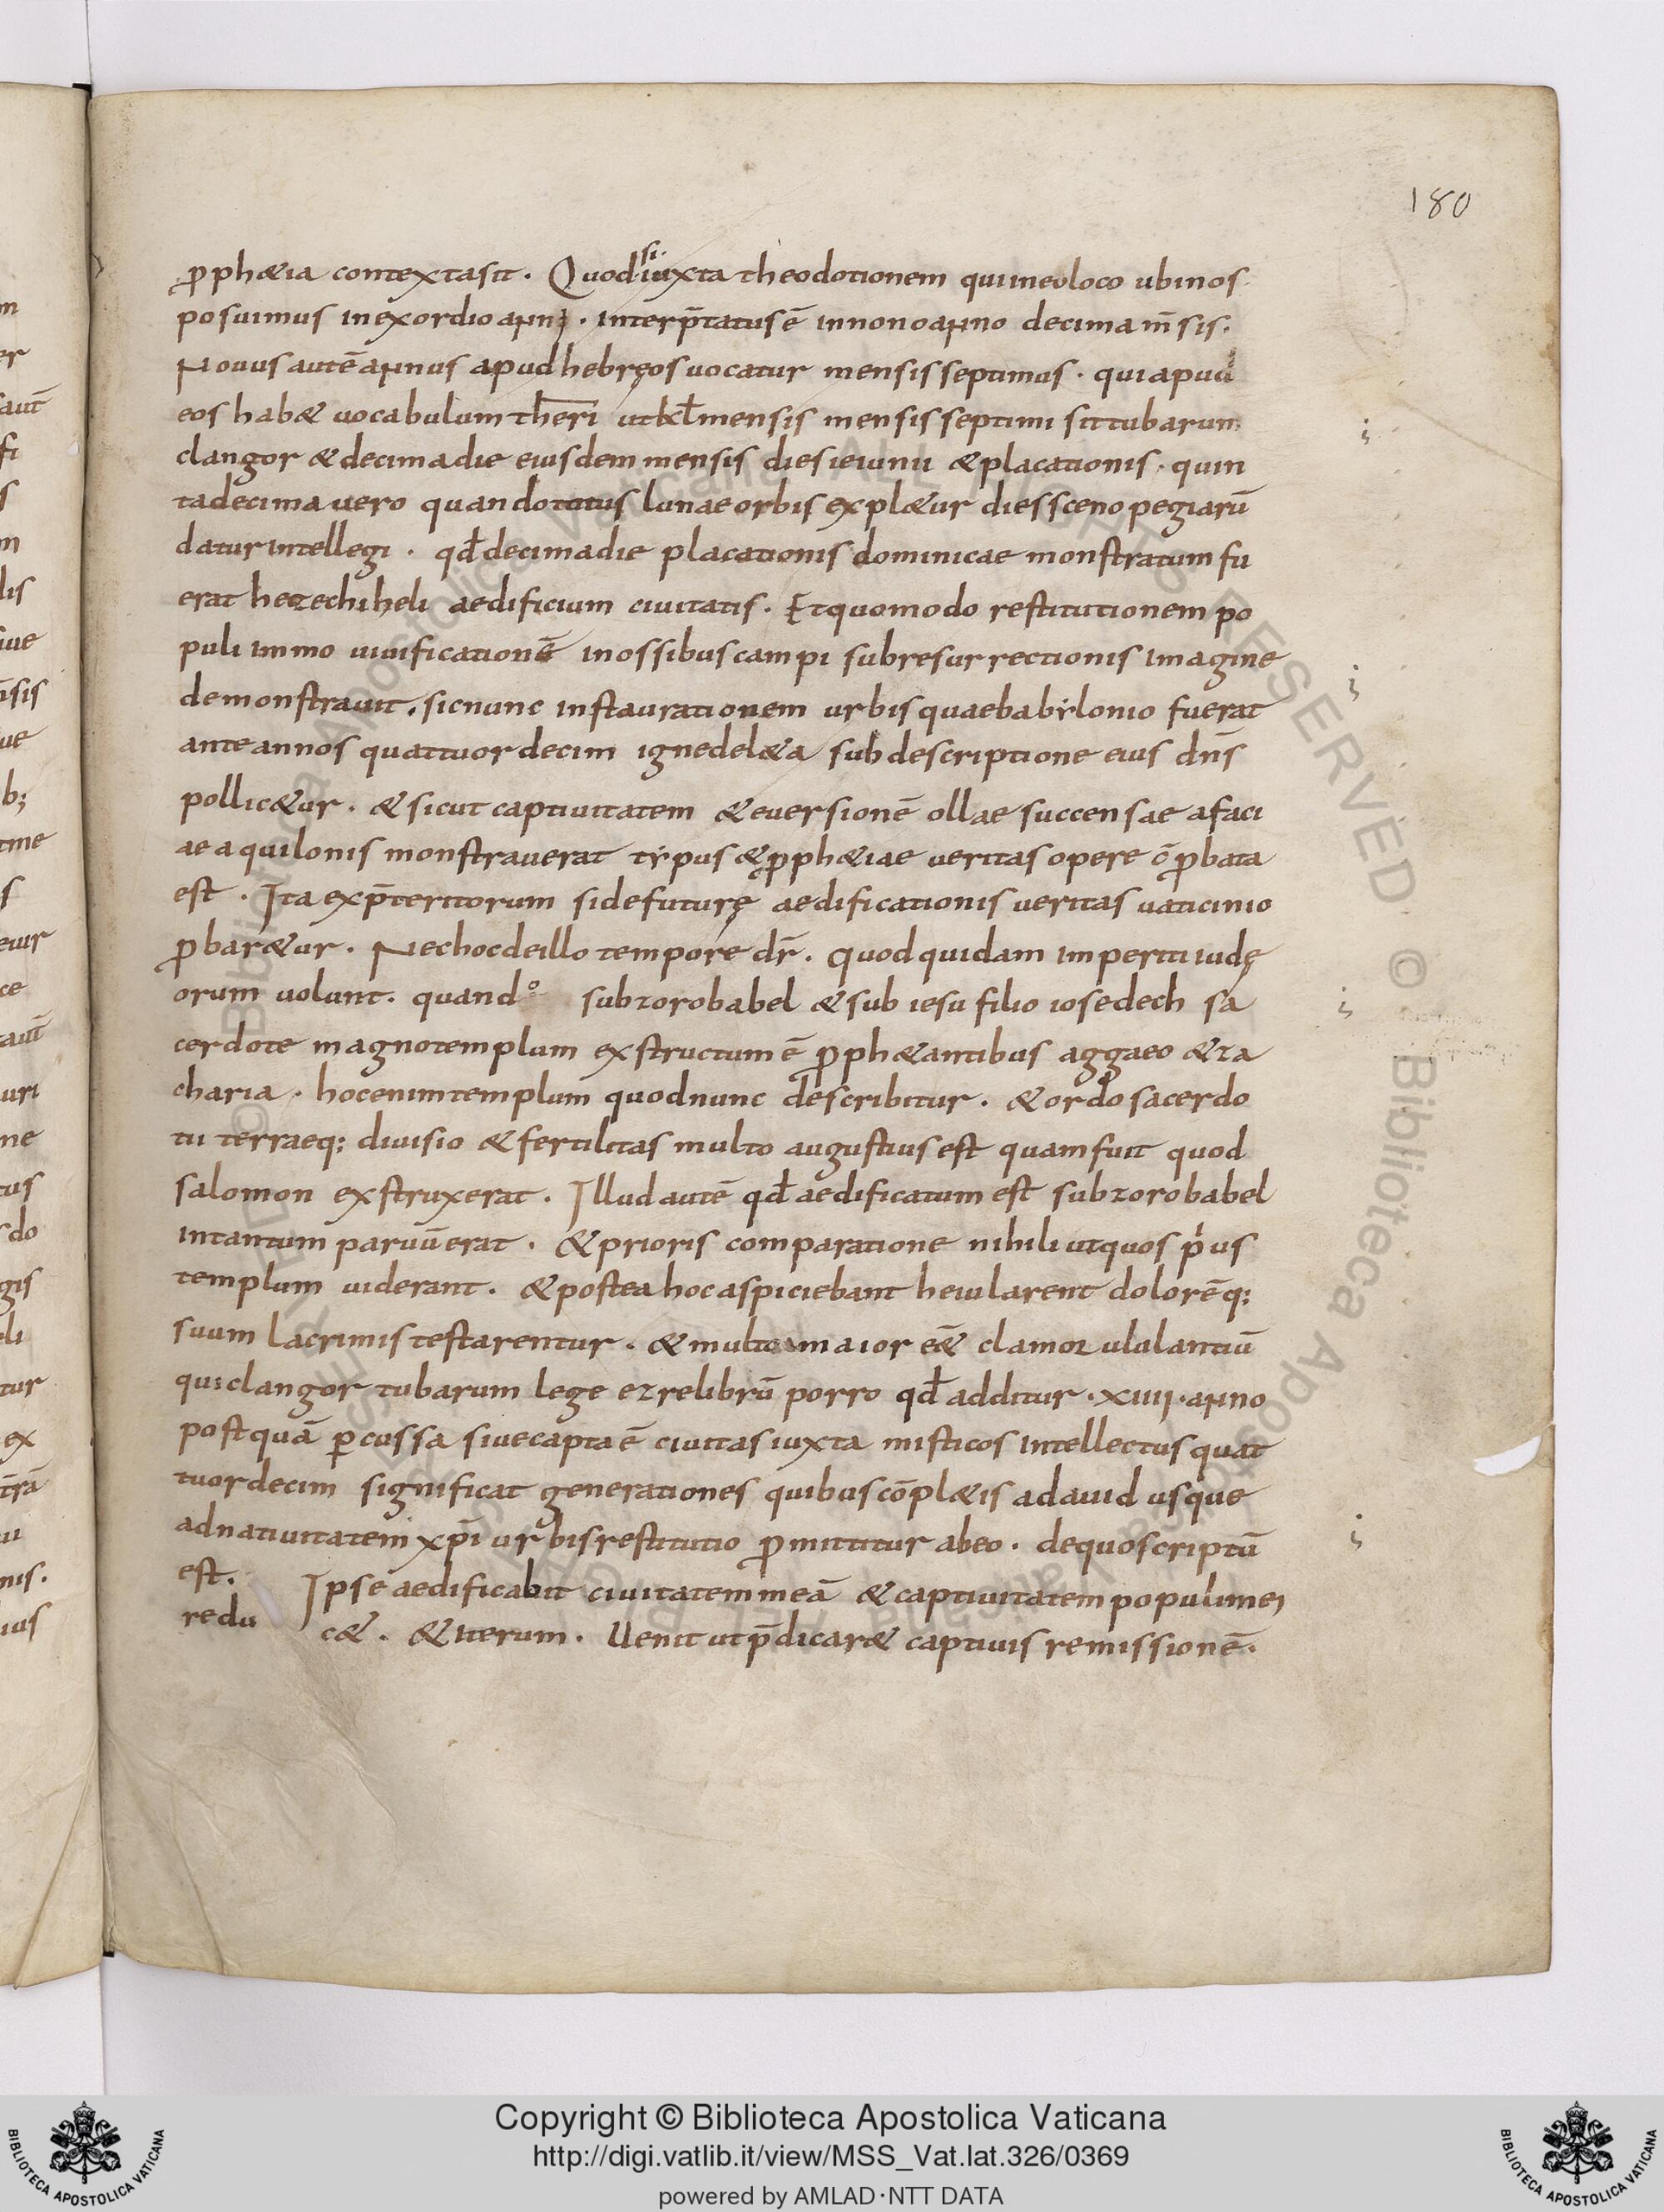 180
ꝓphetia contexta sit. Quod si iuxta theodotionem qui in eo loco ubi nos
posuimus in exordio anni. interp̄tatus ē in nono anno decima m̄sis.
Nouus autē annus apud hebręos uocatur mensis septimus. qui apud
eos habet uocabulum theri ut kł mensis mensis septimi sit tubarum
clangor & decima die eiusdem mensis dies ieiunii & placationis. quin
tadecima uero quando totus lunae orbis expletur dies scenopegiarū
datur intellegi. qđ decima die placationis dominicae monstratum fu
erat hezechiheli aedificium ciuitatis. Et quomodo restitutionem po
puli immo uiuificationē in ossibus campi sub resurrectionis imagine
demonstrauit. sic nunc instaurationem urbis quae babẏlonio fuerat
ante annos quattuordecim igne deleta sub descriptione eius dn̄s
pollicetur. & sicut captiuitatem & euersionē ollae succensae a faci
ae aquilonis monstrauerat tẏpus & ꝓphetiae ueritas opere cō ꝓbata
est. Ita ex p̄teritorum side futurę aedificationis ueritas uaticinio
ꝓbaretur. Nec hoc de illo tempore dr̄. quod quidam imperiti iudę
orum uolunt. quando sub zorobabel & sub iesu filio iosedech sa
cerdote magno templum exstructum ē ꝓphetantibus aggaeo & za
charia. hoc enim templum quod nunc describitur. & ordo sacerdo
tii terraeq; diuisio & fertilitas multo augustius est quam fuit quod
salomon exstruxerat. Illud autē qđ aedificatum est sub zorobabel
in tantum paruū erat. & prioris comparatione nihili ut quos prius
templum uiderant. & postea hoc aspiciebant heiularent dolorēq;
suum lacrimis testarentur. & multo maior eēt clamor ululantiū
qui clangor tubarum lege ezre librū porro qđ additur. xiiii. anno
postquā ꝑcussa siue capta ē ciuitas iuxta misticos intellectus quat
tuordecim significat generationes quibus cōpletis a dauid usque
ad natiuitatem xp̄i urbis restitutio ꝓmittitur ab eo. de quo scriptū
est. Ipse aedificabit ciuitatem meā & captiuitatem populi mei
redu cet. & iterum. Uenit ut p̄dicaret captiuis remissionē.
Copyright © Biblioteca Apostolica Vaticana
http://digi.vatlib.it/view/MSS_Vat.lat.326/0369
powered by AMLAD·NTT DATA
BIBLIOTECA APOSTOLICA VATICANA
BIBLIOTECA APOSTOLICA VATICANA